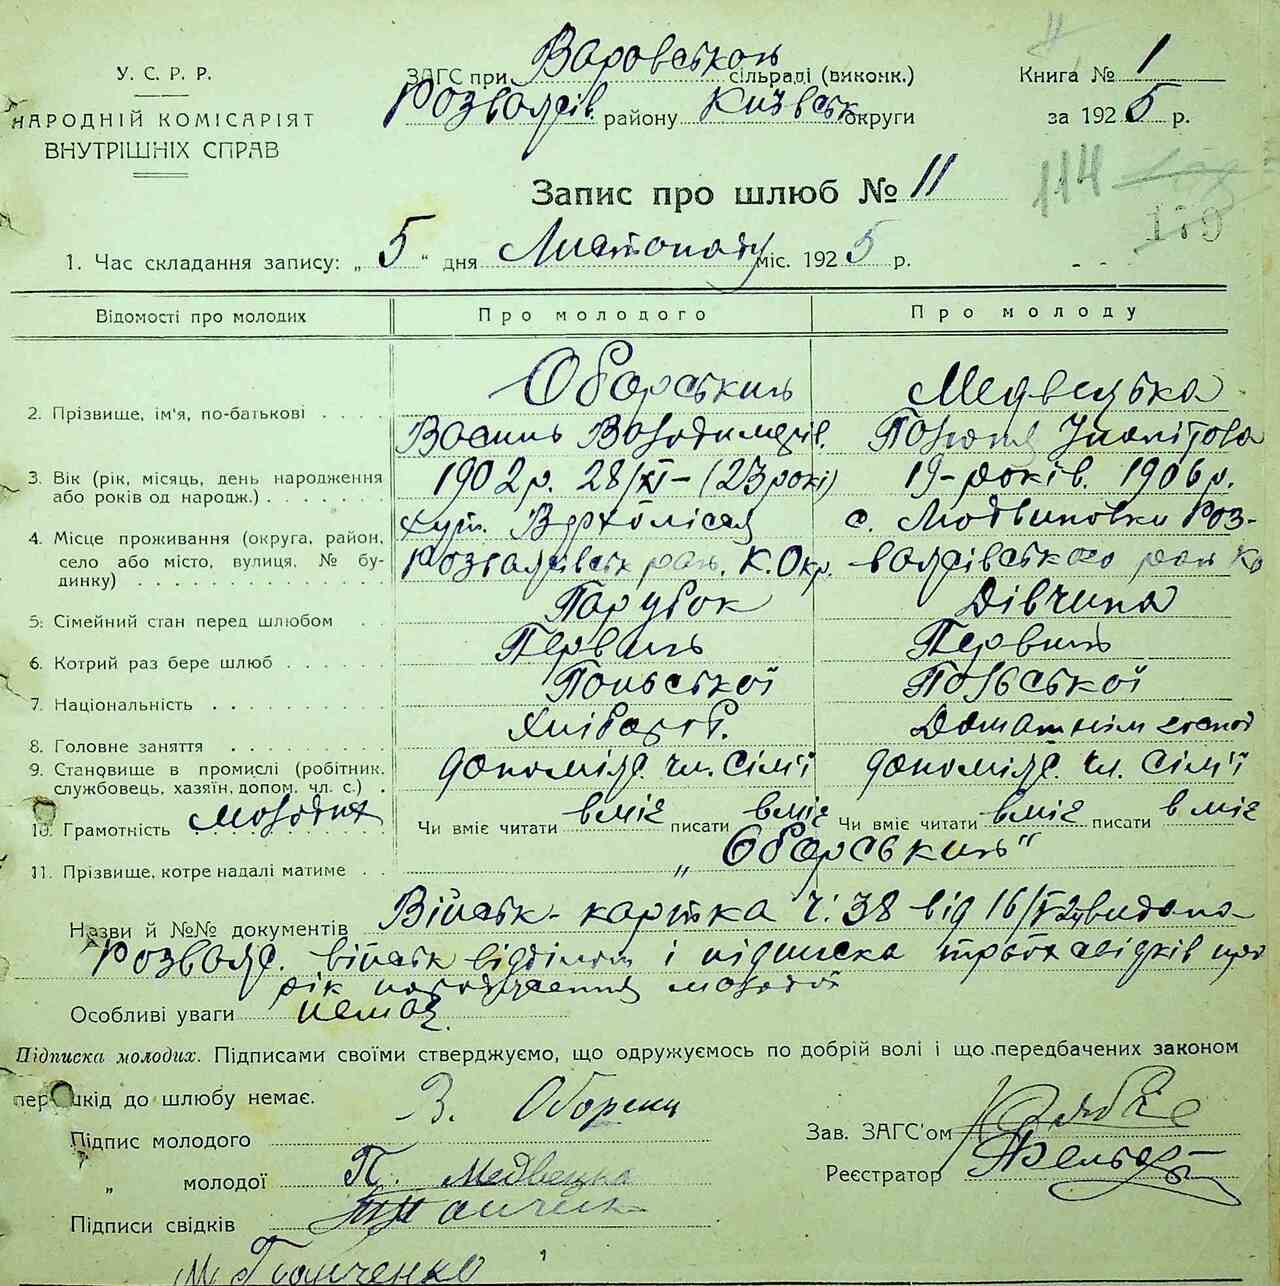 У. С. Р. Р.
НАРОДНІЙ КОМІСАРІЯТ
ВНУТРІШНІХ СПРАВ
ЗАГС при Варовській сільраді (виконк.)
Розважів. району Київськ округи
Книга № 1
за 1925 р.
Запис про шлюб № 11
114
179
1. Час складання запису: „ 5 “ дня Листопаду міс. 1925 р.
Відомості про молодих Про молодого Про молоду
2. Прізвище, ім'я, по-батькові . . . . Оборський Медвецька
Василь Володимирів. Польоня Іполітова
3. Вік (рік, місяць, день народження або років од народж.) . . . . . . 1902 р. 28/XI – (23 роки) 19-років. 1906 р.
4. Місце проживання (округа, район, село або місто, вулиця, № будинку) . . . . . . . . . . хут. Верхолісся с. Мотвиновки Роз-
Розважівськ рай. К. Окр. важівського рай
5. Сімейний стан перед шлюбом . . Парубок Дівчина
6. Котрий раз бере шлюб . . . . . . Первий Первий
7. Національність . . . . . . . . . . Польської Польської
8. Головне заняття . . . . . . . . . Хлібороб. Домашнім господ
9. Становище в промислі (робітник, службовець, хазяїн, допом. чл. с.) . допоміж. чл. сім'ї допоміж. чл. сім'ї
10. Грамотність молодих Чи вміє читати вміє писати вміє Чи вміє читати вміє писати вміє
11. Прізвище, котре надалі матиме . . „Оборський“
Назви й №№ документів Військ-картка ч: 38 від 16/ видана
Розваж. військ відділом і підписка трьох свідків про
рік народження молодої
Особливі уваги немає
Підписка молодих. Підписами своїми стверджуємо, що одружуємось по добрій волі і що передбачених законом
перешкід до шлюбу немає.
Підпис молодого В. Оборски
Зав. ЗАГС'ом
„ молодої П. Медвецка
Реєстратор
Підписи свідків